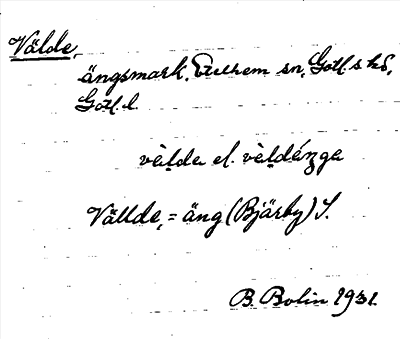 Välde,
ängsmark. Etelhem sn, Gotl. s hd,
Gotl. l.
vèlda el. vèldéŋga
Vällde, = äng (Bjärby) S.
B. Bolin 1931.